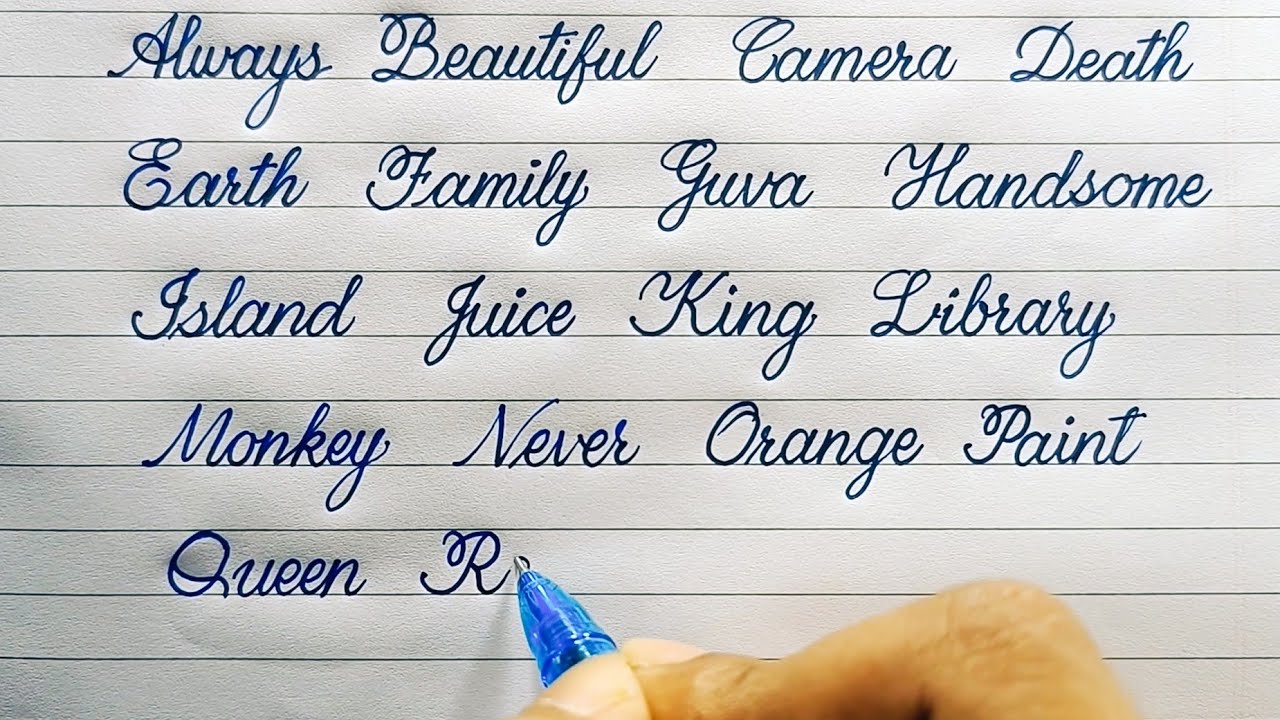 Always Beautiful Camera Death
Earth Family Guva Handsome
Island Juice King Library
Monkey Never Orange Paint
Queen R